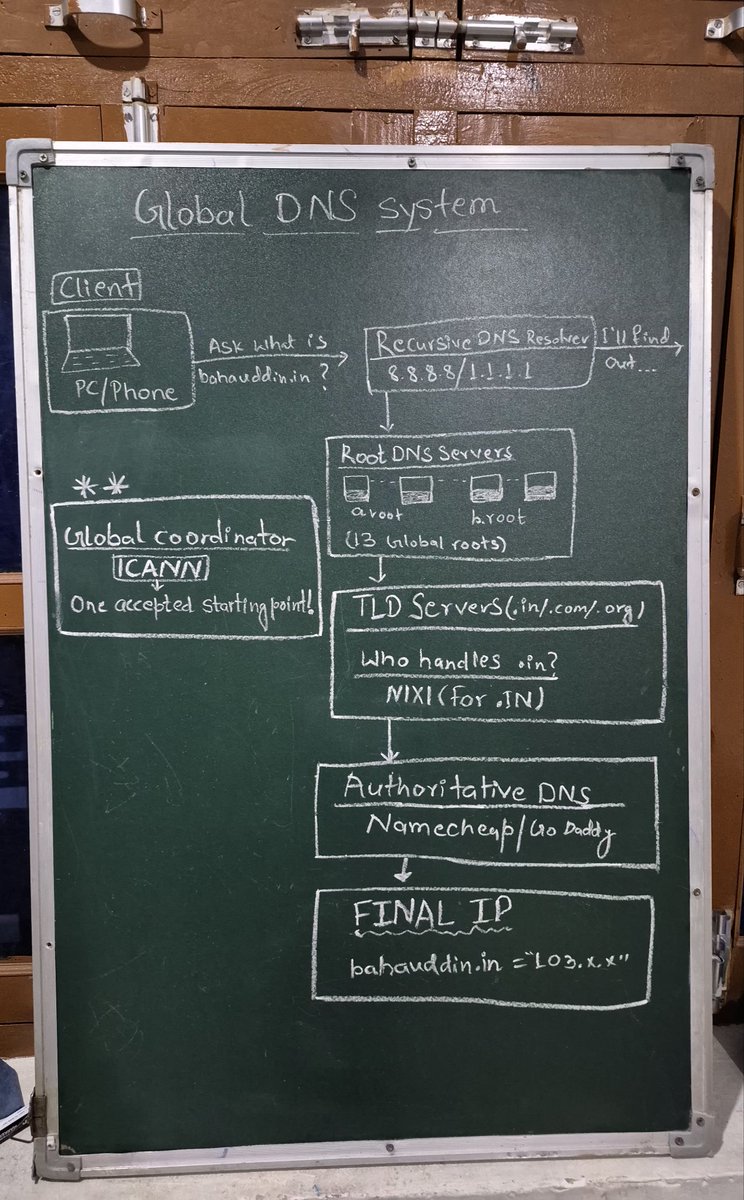 Global DNS system
Client
PC/Phone
Ask what is
bahauddin.in ?
Recursive DNS Resolver
8.8.8.8/1.1.1.1
I'll find
out...
Root DNS Servers
a.root
b.root
(13 Global roots)
**
Global coordinator
ICANN
One accepted starting point!
TLD Servers(.in/.com/.org)
Who handles .in?
NIXI(for .IN)
Authoritative DNS
Namecheap/Go Daddy
FINAL IP
bahauddin.in = "103.x.x"